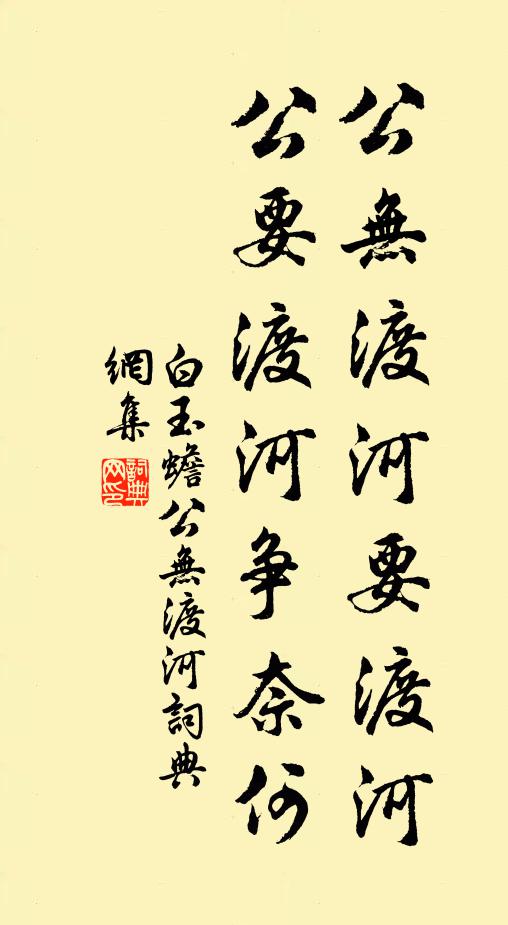 公無渡河要渡河
公要渡河争奈何
白玉蟾公無渡河詞典
網集
詞典
网印